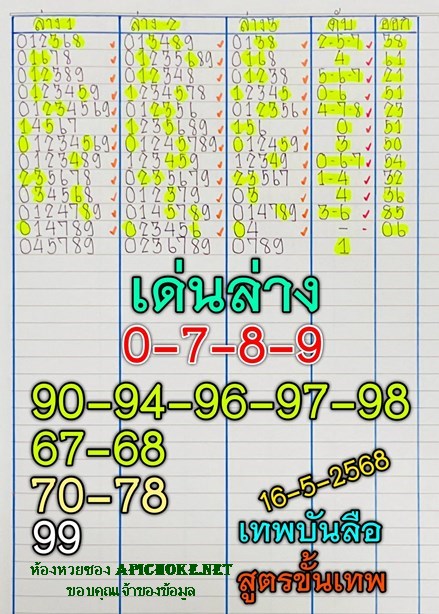 ล่าง 1 ล่าง 2 ล่าง 3 ดับ ออก
012368 013489 0138 2-5-7 38
01678 01235689 0168 4 61
012389 012348 01238 5-6-7 21
0123459 01234578 012345 0-6 51
01234569 012356 012356 4-7-8 23
14567 01235689 156 0 51
01234569 01245789 012459 3 50
0123489 0123459 012349 0-6-7 54
235678 01235679 23567 1-4 32
034568 012379 03 4 36
0124789 0145789 014789 3-6 85
014789 0123456 04 - - 06
045789 0236789 0789 1
เด่นล่าง
0-7-8-9
90-94-96-97-98
67-68
70-78
99
16-5-2568
เทพบันลือ
สูตรขั้นเทพ
ห้องหวยซอง APICHOKE.NET
ขอบคุณเจ้าของข้อมูล